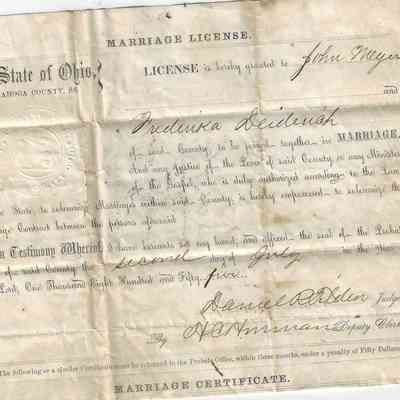 MARRIAGE LICENSE.
State of Ohio,
AHOGA COUNTY, SS
LICENSE is hereby granted to John Meyer
and
Frederika Deiderich
of said County, to be joined together in MARRIAGE,
And any Justice of the Peace of said County, or any Minister
of the Gospel, who is duly authorized according to the Law
the State, to solemnize Marriages within said County, is hereby empowered to solemnize the
iage Contract between the persons aforesaid
n Testimony Whereof, I have hereunto set my hand, and affixed the seal of the Probate
of said County the second day of July in the Year
Lord, One Thousand Eight Hundred and Fifty five
Daniel R Tilden Judge
By H C Deputy Clerk
The following or a similar Certificate must be returned to the Probate Office, within three months, under a penalty of Fifty Dollars
MARRIAGE CERTIFICATE.